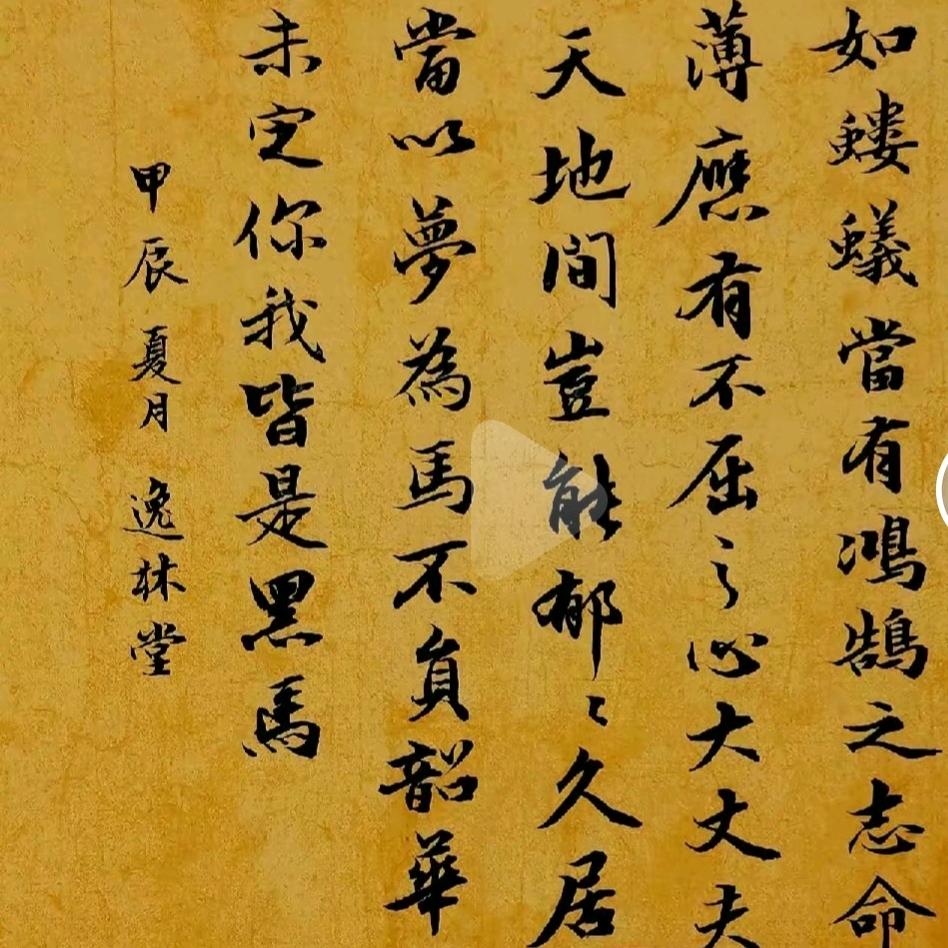 如螻蟻當有鴻鵠之志命
薄應有不屈之心大丈夫
天地間豈能郁々久居
當以夢為馬不負韶華
未定你我皆是黑馬
甲辰夏月逸林堂